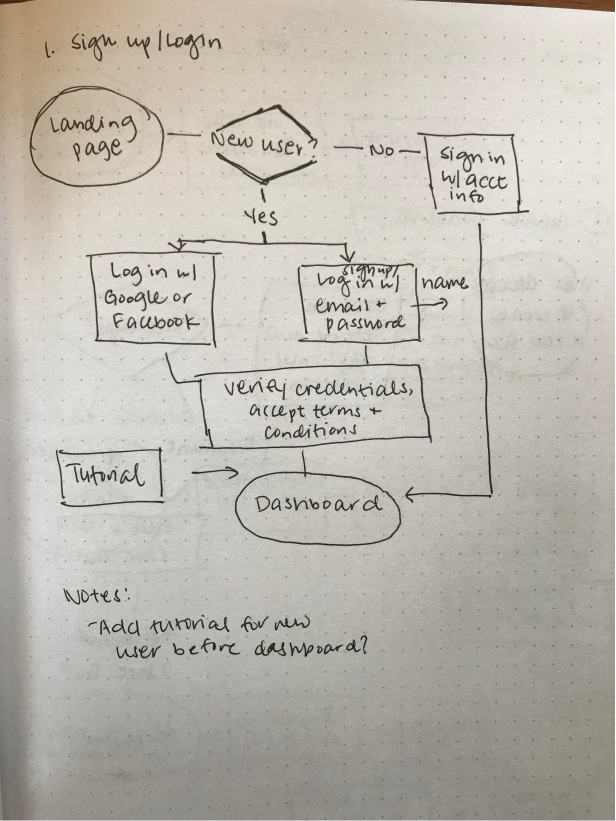 1. Sign up/Login
Landing
page
New user?
No
sign in
w/ acct
info
Yes
Log in w/
Google or
Facebook
sign up/
Log in w/
email +
password
name
verify credentials,
accept terms +
conditions
Tutorial
Dashboard
Notes:
- Add tutorial for new
user before dashboard?